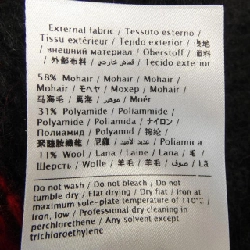 External fabric / Tessuto esterno /
Tissu extérieur / Tejido exterior / 表地
/ внешний материал / Oberstoff /
料 / 外部布料 / قماش خارجي / Tecido exterior
58% Mohair / Mohair / Mohair /
Mohair / モヘヤ / Мохер / Mohair /
马海毛 / 馬海 / موهير / Moér
31% Polyamide / Poliammide /
Polyamide / Poliamida / ナイロン /
Полиамид / Polyamid / 锦纶 /
聚醯胺纖維 / / Poliamida
11% Wool / Lana / Laine / Lana / 毛 /
Шерсть / Wolle / 羊毛 / 羊毛 / صوف / Lã
Do not wash / Do not bleach / Do not
tumble dry / Flat drying / Dry flat / Iron at
maximum sole-plate temperature of 110°C /
Iron, low / Professional dry cleaning in
perchloroethene / Any solvent except
trichloroethylene